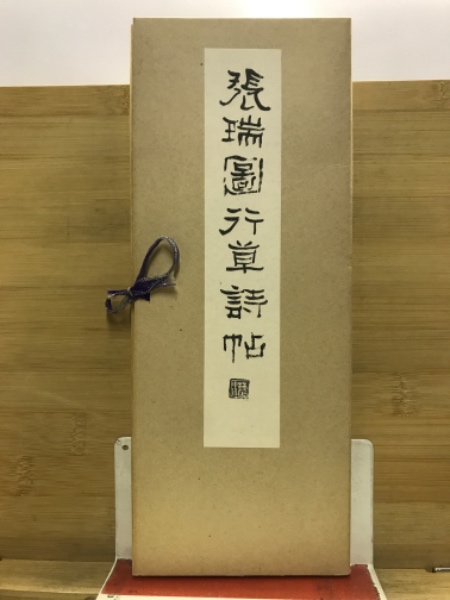 張瑞圖行草詩帖